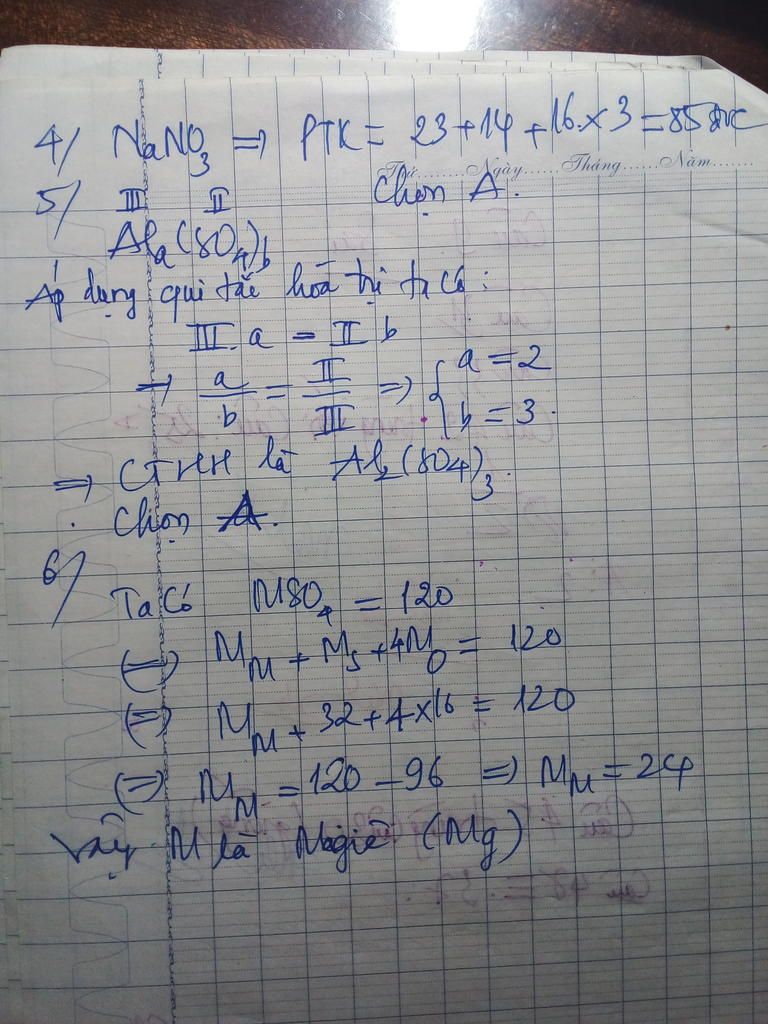 4/ NaNO3 => PTK = 23 + 14 + 16 x 3 = 85 đvC
Thứ........Ngày......Tháng......Năm.......
Chọn A.
5/ III II
Ala(SO4)b
Áp dụng qui tắc hoá trị ta có:
III. a = II b
=> a/b = II/III => { a = 2
b = 3.
=> CTHH là Al2(SO4)3.
Chọn A.
6/
Ta có MSO4 = 120
(=) MM + MS + 4MO = 120
(=) MM + 32 + 4x16 = 120
(=) MM = 120 - 96 => MM = 24
Vậy M là Magiê (Mg)